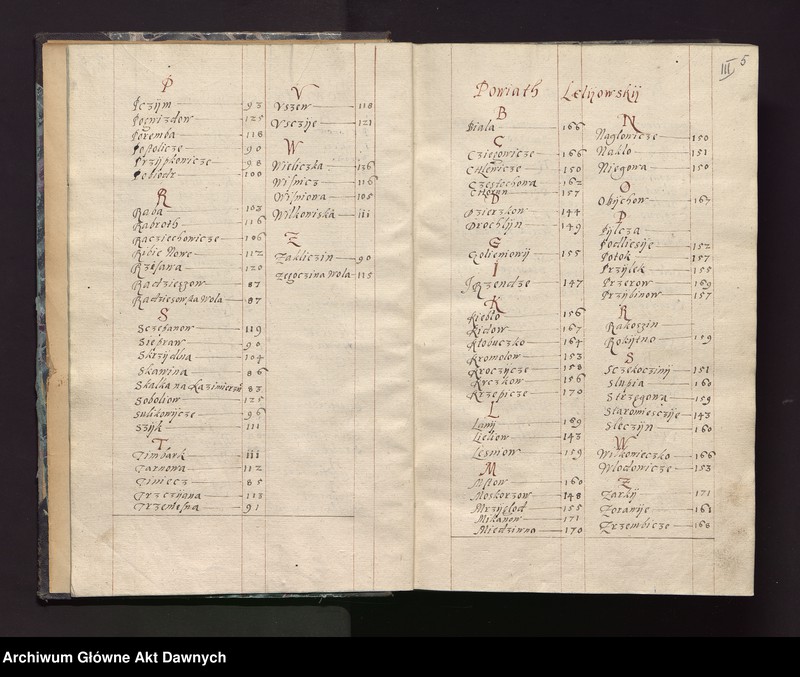 P
Pczijm 93
Pocnizdow 125
Poremba 118
Pstolicze 90
Przijpkowicze 98
Poblodz 100
R
Raba 103
Rabroth 116
Racziechowicze 106
Ribie Nowe 112
Rzesana 120
Radzieszow 87
Radzieszowska Wola 87
S
Sczesanow 119
Siepraw 90
Skrzijdlna 104
Skawina 86
Skalka na Kazimierzu 83
Soboliow 125
Sulikowijcze 96
Szijk 111
T
Timbark 111
Tarnowa 112
Tiniecz 85
Trzcziana 113
Trzemesna 91
V
Vszew 118
Vsczije 121
W
Wieliczka 126
Wisnicz 116
Wisniowa 105
Wilkowiska 111
Z
Zakliczin 90
Zegoczina Wola 115
III 5
Powiath Leliiowskij
B
Biala 166
C
Cziegowicze 166
Chlewicze 150
Czestochowa 162
Choron 157
D
Dzierzkow 144
Drochlijn 149
G
Goliemowij 155
I
Irzendze 147
K
Kieblo 156
Kidow 167
Klobuczko 164
Kromolow 153
Kroczijcze 158
Krczkow 156
Krzepicze 170
L
Lanij 169
Lieliow 143
Lesniow 159
M
Mstow 160
Moskorzow 148
Mrzijglod 155
Mikanow 171
Miedziwna 170
N
Naglowicze 150
Naklo 151
Niegowa 150
O
Obijchow 167
P
Pijlcza
Podliesije 152
Potok 157
Przijlek 155
Przerow 169
Przibinow 157
R
Rakoszin
Rokijtno 159
S
Sczekoczinij 151
Slupia 160
Strzegowa 159
Staromiesczije 143
Sleczijn 160
W
Wilkowieczko 166
Wlodowicze 153
Z
Zarkij 171
Zoranije 161
Zrzembicze 168
Archiwum Główne Akt Dawnych